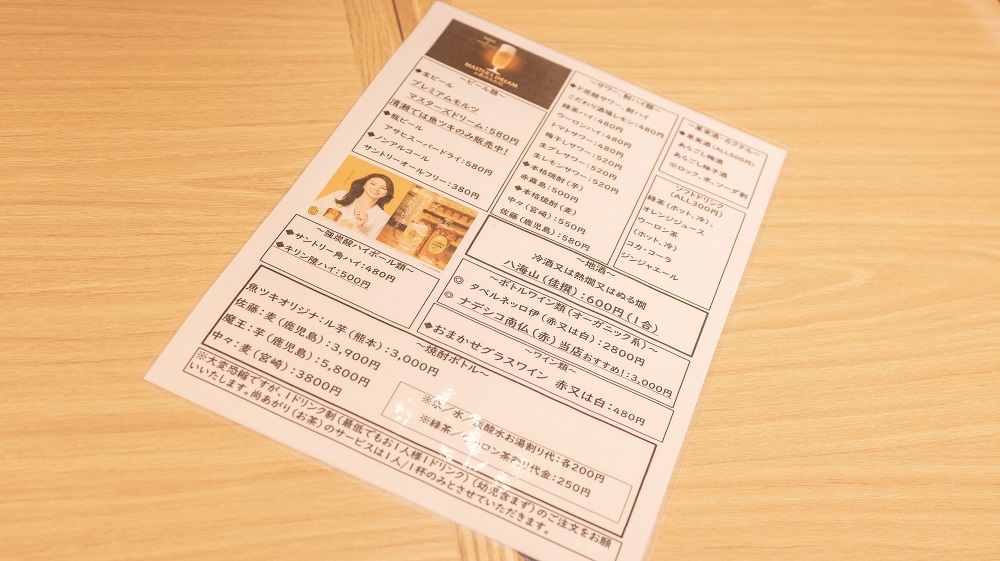 MASTER'S DREAM
～ビール類～
◆生ビール
プレミアムモルツ
マスターズドリーム：580円
清瀬では魚ツキのみ販売中！
◆瓶ビール
アサヒスーパードライ：580円
◆ノンアルコール
サントリーオールフリー：380円
～強炭酸ハイボール類～
◆サントリー角ハイ：480円
◆キリン陸ハイ：500円
～サワー、酎ハイ類～
◆ド炭酸サワー、酎ハイ
こだわり酒場レモン：480円
緑茶ハイ：480円
ウーロンハイ：480円
トマトサワー：480円
梅干しサワー：520円
生グレサワー：520円
生レモンサワー：520円
◆本格焼酎（芋）
赤霧島：500円
◆本格焼酎（麦）
中々（宮崎）：550円
佐藤（鹿児島）：580円
～果実酒・カクテル～
◆果実酒（ALL500円）
あらごし梅酒
あらごし柚子酒
※ロック、水、ソーダ割
ソフトドリンク
（ALL300円）
緑茶（ホット、冷）、
オレンジジュース
ウーロン茶
（ホット、冷）
コカ・コーラ
ジンジャエール
～地酒～
冷酒又は熱燗又はぬる燗
八海山（佳撰）：600円（1合）
～ボトルワイン類（オーガニック系）～
◎ タベルネッロ伊（赤又は白）：2800円
◎ ナデシコ南仏（赤）当店おすすめ！：3,000円
～ワイン類～
◆おまかせグラスワイン 赤又は白：480円
～焼酎ボトル～
魚ツキオリジナル芋（熊本）：3,000円
佐藤：麦（鹿児島）：3,900円
魔王：芋（鹿児島）：5,800円
中々：麦（宮崎）：3800円
炭酸水お湯割り代：各200円
※緑茶／ウーロン茶わり代金：250円
※大変恐縮ですが、1ドリンク制（最低でもお1人様1ドリンク）（幼児含まず）のご注文をお願
いいたします。尚あがり（お茶）のサービスは1人／1杯のみとさせていただきます。